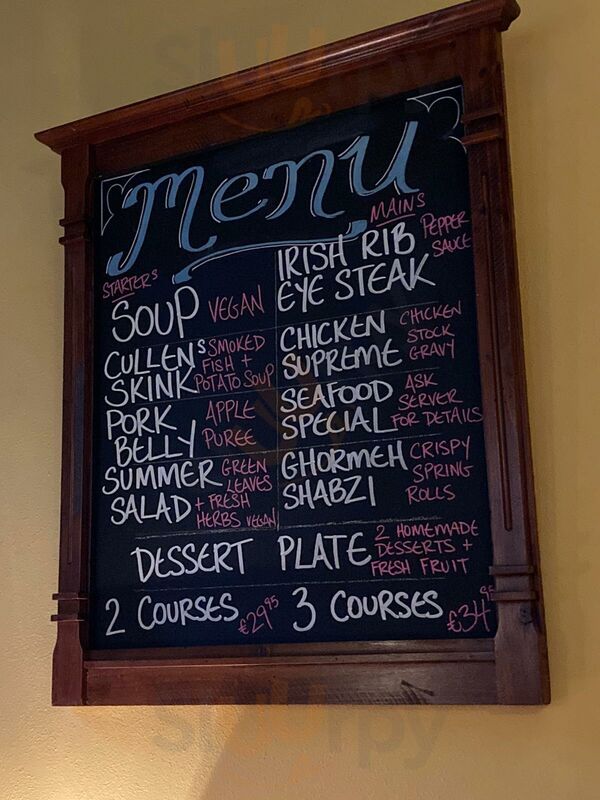 Menu
STARTERS
SOUP VEGAN
CULLENS SMOKED
SKINK FISH +
POTATO SOUP
PORK APPLE
BELLY PUREE
SUMMER GREEN
LEAVES
SALAD + FRESH
HERBS VEGAN
MAINS
IRISH RIB PEPPER
EYE STEAK SAUCE
CHICKEN CHICKEN
SUPREME STOCK
GRAVY
SEAFOOD ASK
SPECIAL SERVER
FOR DETAILS
GHORMEH CRISPY
SHABZI SPRING
ROLLS
DESSERT PLATE 2 HOMEMADE
DESSERTS +
FRESH FRUIT
2 COURSES €29.95 3 COURSES €34.95
slurrpy
slurrpy